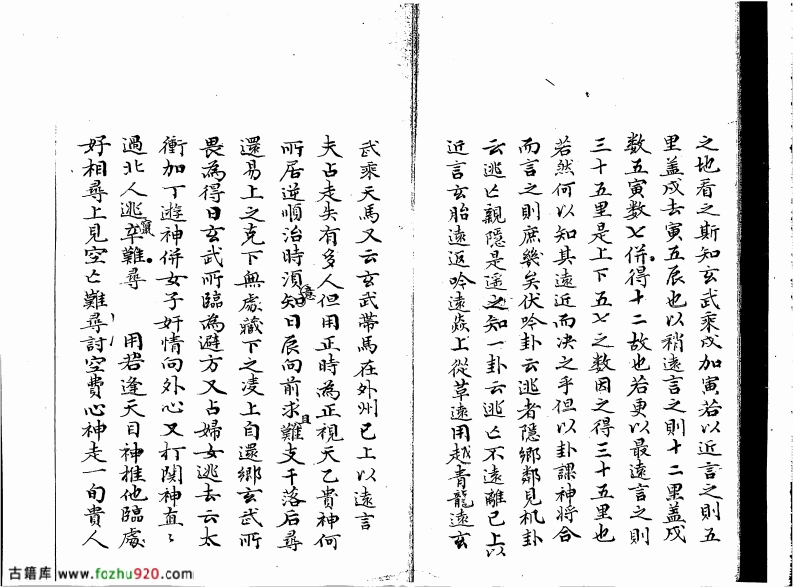 之地看之斯知玄武乘戍加寅若以近言之則五
里盖戍去寅五辰也以稍遠言之則十二里盖戍
数五寅数七併得十二故也若更以最遠言之則
三十五里是上下五七之数因之得三十五里也
若然何以知其遠近而决之乎但以卦課神将合
而言之則庶幾矣伏吟卦云逃者隠鄉鄰見机卦
云逃亡親隠是遥之知一卦云逃亡不遠離已上以
近言玄胎遠返吟遠炎上從草遠用越青龍遠玄
武乘天馬又云玄武帯馬在外州已上以遠言
夫占走失有多人但用正時為正視天乙貴神何
所居逆順治時須知意日辰向前求難且支干落后尋
還易上之克下無處藏下之凌上自還鄉玄武所
畏為得日玄武所臨為避方又占婦女逃去云太
衝加丁遊神併女子奸情向外心又打関神直〻
過北人逃竄卒難尋 用若逢天目神推他臨處
好相尋上見空亡難尋討空費心神走一旬貴人
古籍库 www.fozhu920.com